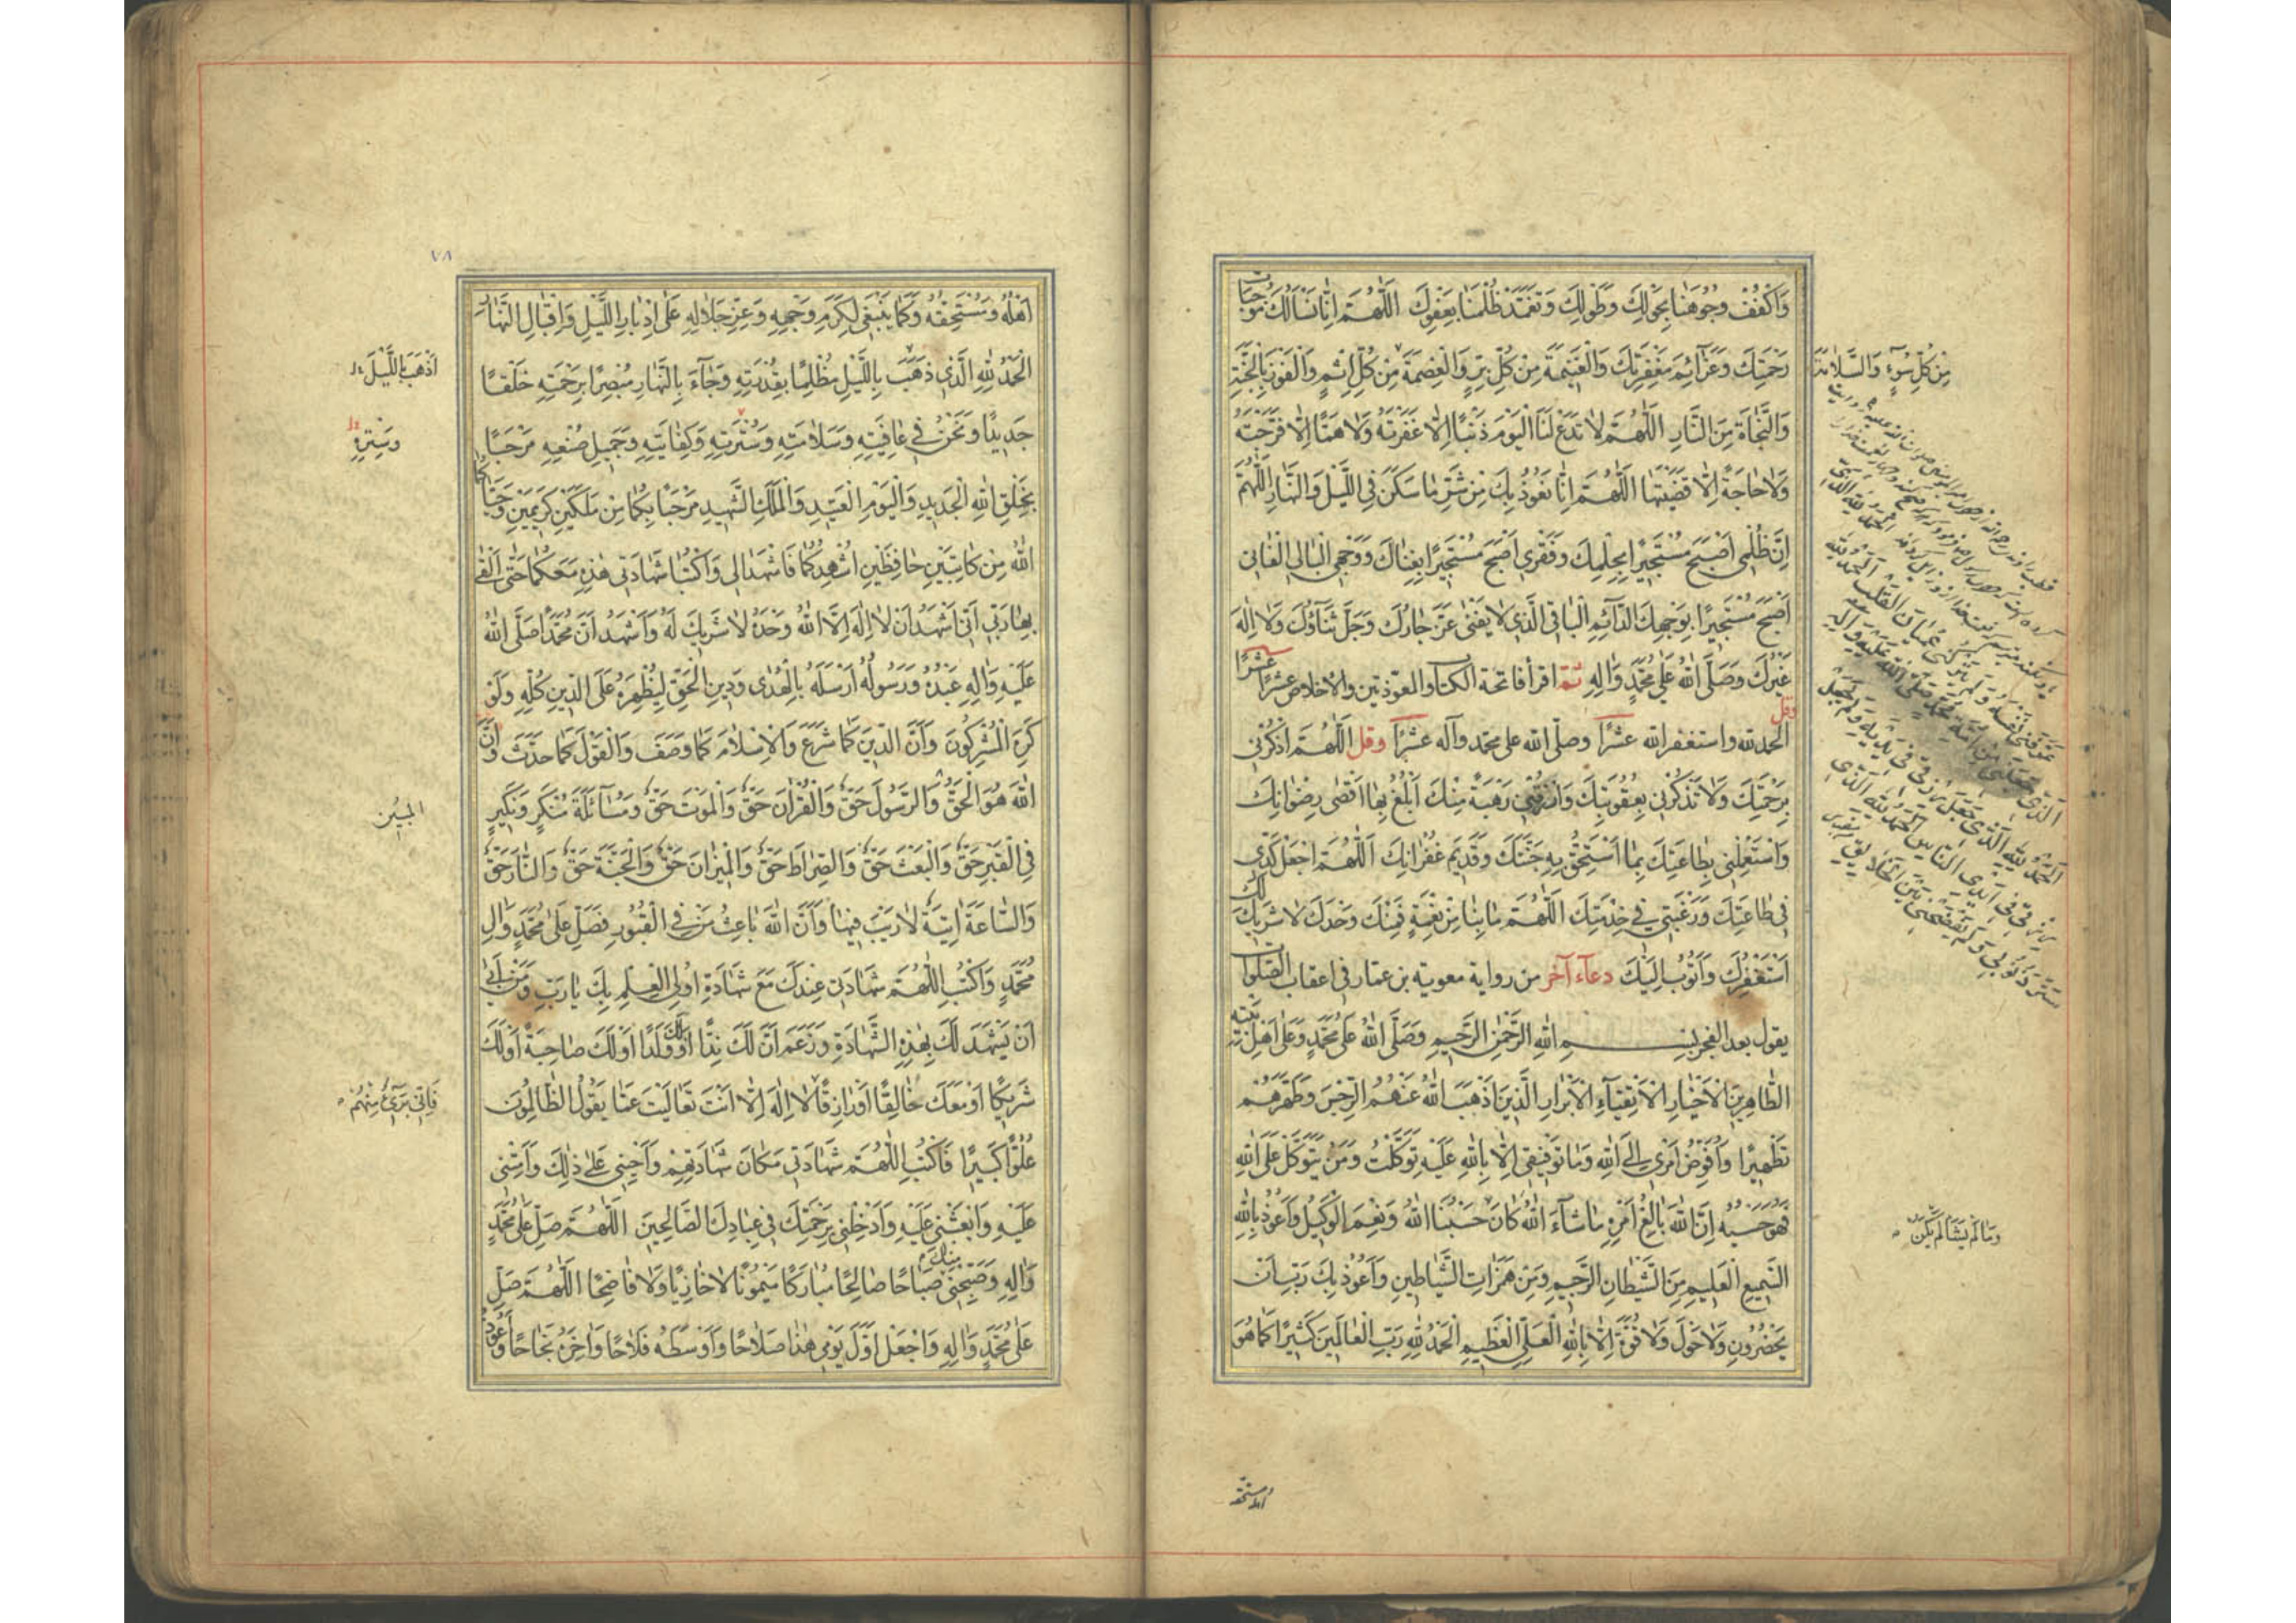 وَاكْفُفْ وُجُوهَنَا بِحَوْلِكَ وَطَوْلِكَ وَتَغَمَّدْ ظُلْمَنَا بِعَفْوِكَ اَللّٰهُمَّ اِنَّا نَسْاَلُكَ مُوجِبَاتِ
رَحْمَتِكَ وَعَزَآئِمَ مَغْفِرَتِكَ وَالْغَنِيمَةَ مِنْ كُلِّ بِرٍّ وَالْعِصْمَةَ مِنْ كُلِّ اِثْمٍ وَالْفَوْزَ بِالْجَنَّةِ
وَالنَّجَاةَ مِنَ النَّارِ اَللّٰهُمَّ لَا تَدَعْ لَنَا الْيَوْمَ ذَنْبًا اِلَّا غَفَرْتَهُ وَلَا هَمًّا اِلَّا فَرَّجْتَهُ
وَلَا حَاجَةً اِلَّا قَضَيْتَهَا اَللّٰهُمَّ اِنَّا نَعُوذُ بِكَ مِنْ شَرِّ مَا سَكَنَ فِي اللَّيْلِ وَالنَّهَارِ اَللّٰهُمَّ
اِنَّ ظُلْمِي اَصْبَحَ مُسْتَجِيرًا بِحِلْمِكَ وَفَقْرِي اَصْبَحَ مُسْتَجِيرًا بِغِنَاكَ وَوَجْهِيَ الْبَالِي الْفَانِي
اَصْبَحَ مُسْتَجِيرًا بِوَجْهِكَ الدَّآئِمِ الْبَاقِي الَّذِي لَا يَفْنَى عَزَّ جَارُكَ وَجَلَّ ثَنَآؤُكَ وَلَا اِلٰهَ
غَيْرُكَ وَصَلَّى اللّٰهُ عَلَى مُحَمَّدٍ وَاٰلِهِ ثمّ اقرأ فاتحة الكتاب والمعوّذتين والاخلاص عشرًا عشرًا
وقل
الحمد لله واستغفر الله عشرًا وصلّى الله على محمّد وآله عشرًا وقل اَللّٰهُمَّ اذْكُرْنِي
بِرَحْمَتِكَ وَلَا تَذْكُرْنِي بِعُقُوبَتِكَ وَارْزُقْنِي رَهْبَةً مِنْكَ اَبْلُغُ بِهَا اَقْصَى رِضْوَانِكَ
وَاسْتَعْمِلْنِي بِطَاعَتِكَ بِمَا اَسْتَحِقُّ بِهِ جَنَّتَكَ وَقَدِيمَ غُفْرَانِكَ اَللّٰهُمَّ اجْعَلْ كَدِّي
فِي طَاعَتِكَ وَرَغْبَتِي فِي خِدْمَتِكَ اَللّٰهُمَّ مَا بِنَا مِنْ نِعْمَةٍ فَمِنْكَ وَحْدَكَ لَا شَرِيكَ لَكَ
اَسْتَغْفِرُكَ وَاَتُوبُ اِلَيْكَ دعآء آخر من رواية معوية بن عمّار في اعقاب الصّلوات
يقول بعد الفجر بِسْمِ اللّٰهِ الرَّحْمٰنِ الرَّحِيمِ وَصَلَّى اللّٰهُ عَلَى مُحَمَّدٍ وَعَلَى اَهْلِ بَيْتِهِ
الطَّاهِرِينَ الْاَخْيَارِ الْاَتْقِيَآءِ الْاَبْرَارِ الَّذِينَ اَذْهَبَ اللّٰهُ عَنْهُمُ الرِّجْسَ وَطَهَّرَهُمْ
تَطْهِيرًا وَاُفَوِّضُ اَمْرِي اِلَى اللّٰهِ وَمَا تَوْفِيقِي اِلَّا بِاللّٰهِ عَلَيْهِ تَوَكَّلْتُ وَمَنْ يَتَوَكَّلْ عَلَى اللّٰهِ
فَهُوَ حَسْبُهُ اِنَّ اللّٰهَ بَالِغُ اَمْرِهِ مَا شَآءَ اللّٰهُ كَانَ حَسْبُنَا اللّٰهُ وَنِعْمَ الْوَكِيلُ وَاَعُوذُ بِاللّٰهِ
السَّمِيعِ الْعَلِيمِ مِنَ الشَّيْطَانِ الرَّجِيمِ وَمِنْ هَمَزَاتِ الشَّيَاطِينِ وَاَعُوذُ بِكَ رَبِّ اَنْ
يَحْضُرُونِ وَلَا حَوْلَ وَلَا قُوَّةَ اِلَّا بِاللّٰهِ الْعَلِيِّ الْعَظِيمِ اَلْحَمْدُ لِلّٰهِ رَبِّ الْعَالَمِينَ كَثِيرًا كَمَا هُوَ
مِنْ كُلِّ سُوٓءٍ وَالسَّلَامَةَ
عَرَّفَنِي نَفْسَهُ وَلَمْ يَتْرُكْنِي عُمْيَانَ الْقَلْبِ اَلْحَمْدُ لِلّٰهِ
الَّذِي جَعَلَنِي مِنْ اُمَّةِ مُحَمَّدٍ صَلَّى اللّٰهُ عَلَيْهِ وَاٰلِهِ
اَلْحَمْدُ لِلّٰهِ الَّذِي جَعَلَ رِزْقِي فِي يَدَيْهِ وَلَمْ يَجْعَلْ
رِزْقِي فِي اَيْدِي النَّاسِ اَلْحَمْدُ لِلّٰهِ الَّذِي
سَتَرَ ذُنُوبِي وَلَمْ يَفْضَحْنِي بَيْنَ الْخَلَايِقِ
وَمَا لَمْ يَشَأْ لَمْ يَكُنْ
اهله ومستحقه
٧٨
اَهْلُهُ وَمُسْتَحِقُّهُ وَكَمَا يَنْبَغِي لِكَرَمِ وَجْهِهِ وَعِزِّ جَلَالِهِ عَلَى اِدْبَارِ اللَّيْلِ وَاِقْبَالِ النَّهَارِ
اَلْحَمْدُ لِلّٰهِ الَّذِي ذَهَبَ بِاللَّيْلِ مُظْلِمًا بِقُدْرَتِهِ وَجَآءَ بِالنَّهَارِ مُبْصِرًا بِرَحْمَتِهِ خَلْقًا
جَدِيدًا وَنَحْنُ فِي عَافِيَتِهِ وَسَلَامَتِهِ وَسُتْرَتِهِ وَكِفَايَتِهِ وَجَمِيلِ صُنْعِهِ مَرْحَبًا
بِخَلْقِ اللّٰهِ الْجَدِيدِ وَالْيَوْمِ الْعَتِيدِ وَالْمَلَكِ الشَّهِيدِ مَرْحَبًا بِكُمَا مِنْ مَلَكَيْنِ كَرِيمَيْنِ وَحَيَّاكُمَا
اللّٰهُ مِنْ كَاتِبَيْنِ حَافِظَيْنِ اُشْهِدُكُمَا فَاشْهَدَا لِي وَاكْتُبَا شَهَادَتِي هٰذِهِ مَعَكُمَا حَتَّى اَلْقَى
بِهَا رَبِّي اَنِّي اَشْهَدُ اَنْ لَا اِلٰهَ اِلَّا اللّٰهُ وَحْدَهُ لَا شَرِيكَ لَهُ وَاَشْهَدُ اَنَّ مُحَمَّدًا صَلَّى اللّٰهُ
عَلَيْهِ وَاٰلِهِ عَبْدُهُ وَرَسُولُهُ اَرْسَلَهُ بِالْهُدَى وَدِينِ الْحَقِّ لِيُظْهِرَهُ عَلَى الدِّينِ كُلِّهِ وَلَوْ
كَرِهَ الْمُشْرِكُونَ وَاَنَّ الدِّينَ كَمَا شَرَعَ وَالْاِسْلَامَ كَمَا وَصَفَ وَالْقَوْلَ كَمَا حَدَّثَ وَاَنَّ
اللّٰهَ هُوَ الْحَقُّ وَالرَّسُولَ حَقٌّ وَالْقُرْاٰنَ حَقٌّ وَالْمَوْتَ حَقٌّ وَمُسَآئَلَةَ مُنْكَرٍ وَنَكِيرٍ
فِي الْقَبْرِ حَقٌّ وَالْبَعْثَ حَقٌّ وَالصِّرَاطَ حَقٌّ وَالْمِيزَانَ حَقٌّ وَالْجَنَّةَ حَقٌّ وَالنَّارَ حَقٌّ
وَالسَّاعَةَ اٰتِيَةٌ لَا رَيْبَ فِيهَا وَاَنَّ اللّٰهَ بَاعِثُ مَنْ فِي الْقُبُورِ فَصَلِّ عَلَى مُحَمَّدٍ وَاٰلِ
مُحَمَّدٍ وَاكْتُبِ اللّٰهُمَّ شَهَادَتِي عِنْدَكَ مَعَ شَهَادَةِ اُولِي الْعِلْمِ بِكَ يَا رَبِّ وَمَنْ اَبَى
اَنْ يَشْهَدَ لَكَ بِهٰذِهِ الشَّهَادَةِ وَزَعَمَ اَنَّ لَكَ نِدًّا اَوْ لَكَ وَلَدًا اَوْ لَكَ صَاحِبَةً اَوْ لَكَ
شَرِيكًا اَوْ مَعَكَ خَالِقًا اَوْ رَازِقًا لَا اِلٰهَ اِلَّا اَنْتَ تَعَالَيْتَ عَمَّا يَقُولُ الظَّالِمُونَ
عُلُوًّا كَبِيرًا فَاكْتُبِ اللّٰهُمَّ شَهَادَتِي مَكَانَ شَهَادَتِهِمْ وَاَحْيِنِي عَلَى ذٰلِكَ وَاَمِتْنِي
عَلَيْهِ وَابْعَثْنِي عَلَيْهِ وَاَدْخِلْنِي بِرَحْمَتِكَ فِي عِبَادِكَ الصَّالِحِينَ اَللّٰهُمَّ صَلِّ عَلَى مُحَمَّدٍ
وَاٰلِهِ وَصَبِّحْنِي مِنْكَ صَبَاحًا صَالِحًا مُبَارَكًا مَيْمُونًا لَا خَازِيًا وَلَا فَاضِحًا اَللّٰهُمَّ صَلِّ
عَلَى مُحَمَّدٍ وَاٰلِهِ وَاجْعَلْ اَوَّلَ يَوْمِي هٰذَا صَلَاحًا وَاَوْسَطَهُ فَلَاحًا وَاٰخِرَهُ نَجَاحًا وَاَعُوذُ
اَذْهَبَ اللَّيْلَ
وَسِتْرِهِ
المبين
فَاِنِّي بَرِيٓءٌ مِنْهُمْ